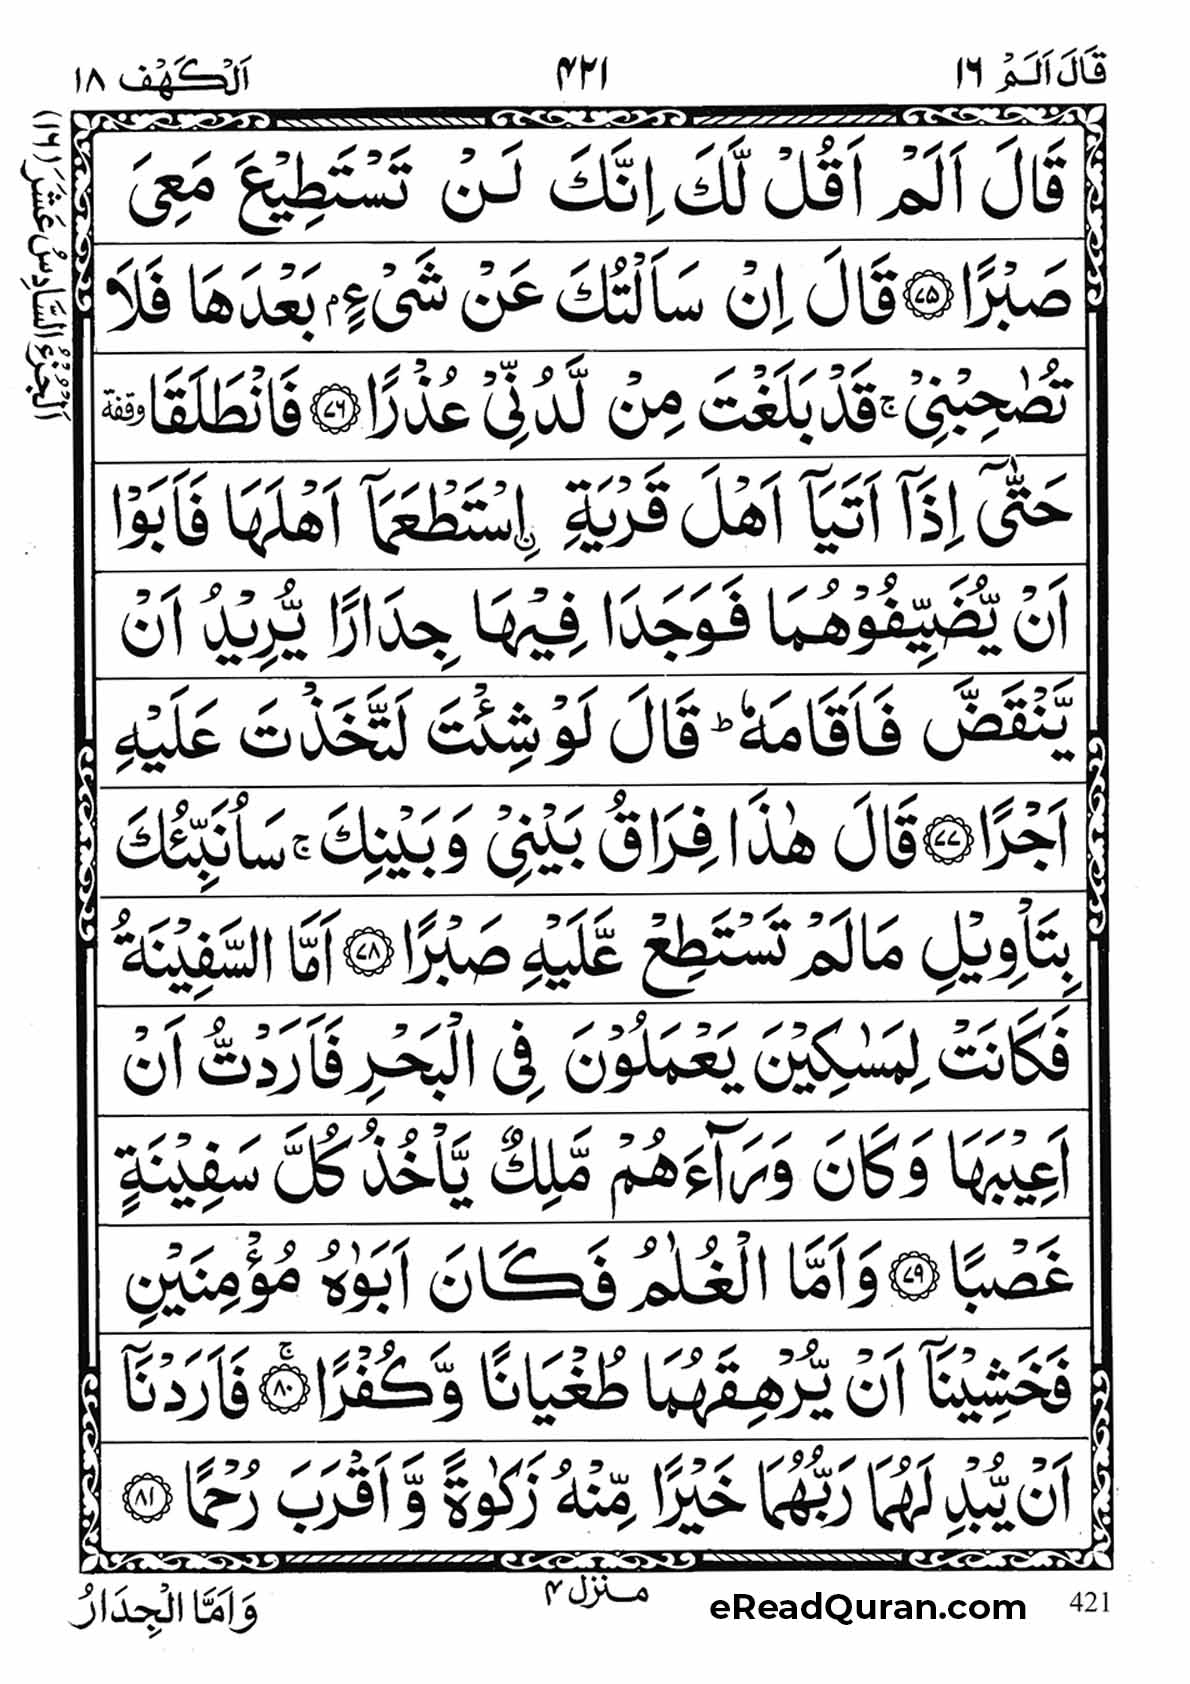 قَالَ اَلَمْ ١٦
٤٢١
اَلْكَهْف ١٨
اَلْجُزْءُ السَّادِسُ عَشَرَ (١٦)
قَالَ اَلَمْ اَقُلْ لَّكَ اِنَّكَ لَنْ تَسْتَطِيْعَ مَعِىَ
صَبْرًا ﴿٧٥﴾ قَالَ اِنْ سَاَلْتُكَ عَنْ شَىْءٍۭ بَعْدَهَا فَلَا
تُصٰحِبْنِىْ ۚ قَدْ بَلَغْتَ مِنْ لَّدُنِّىْ عُذْرًا ﴿٧٦﴾ فَانْطَلَقَا وقفة
حَتّٰٓى اِذَآ اَتَيَآ اَهْلَ قَرْيَةِ ࣙاسْتَطْعَمَآ اَهْلَهَا فَاَبَوْا
اَنْ يُّضَيِّفُوْهُمَا فَوَجَدَا فِيْهَا جِدَارًا يُّرِيْدُ اَنْ
يَّنْقَضَّ فَاَقَامَهٗ ؕ قَالَ لَوْ شِئْتَ لَتَّخَذْتَ عَلَيْهِ
اَجْرًا ﴿٧٧﴾ قَالَ هٰذَا فِرَاقُ بَيْنِىْ وَبَيْنِكَ ۚ سَاُنَبِّئُكَ
بِتَاْوِيْلِ مَا لَمْ تَسْتَطِعْ عَّلَيْهِ صَبْرًا ﴿٧٨﴾ اَمَّا السَّفِيْنَةُ
فَكَانَتْ لِمَسٰكِيْنَ يَعْمَلُوْنَ فِى الْبَحْرِ فَاَرَدْتُّ اَنْ
اَعِيْبَهَا وَكَانَ وَرَآءَهُمْ مَّلِكٌ يَّاْخُذُ كُلَّ سَفِيْنَةٍ
غَصْبًا ﴿٧٩﴾ وَاَمَّا الْغُلٰمُ فَكَانَ اَبَوٰهُ مُؤْمِنَيْنِ
فَخَشِيْنَآ اَنْ يُّرْهِقَهُمَا طُغْيَانًا وَّكُفْرًا ﴿٨٠﴾ ۚ فَاَرَدْنَآ
اَنْ يُّبْدِلَهُمَا رَبُّهُمَا خَيْرًا مِّنْهُ زَكٰوةً وَّاَقْرَبَ رُحْمًا ﴿٨١﴾
منزل ٤
وَاَمَّا الْجِدَارُ
eReadQuran.com
421